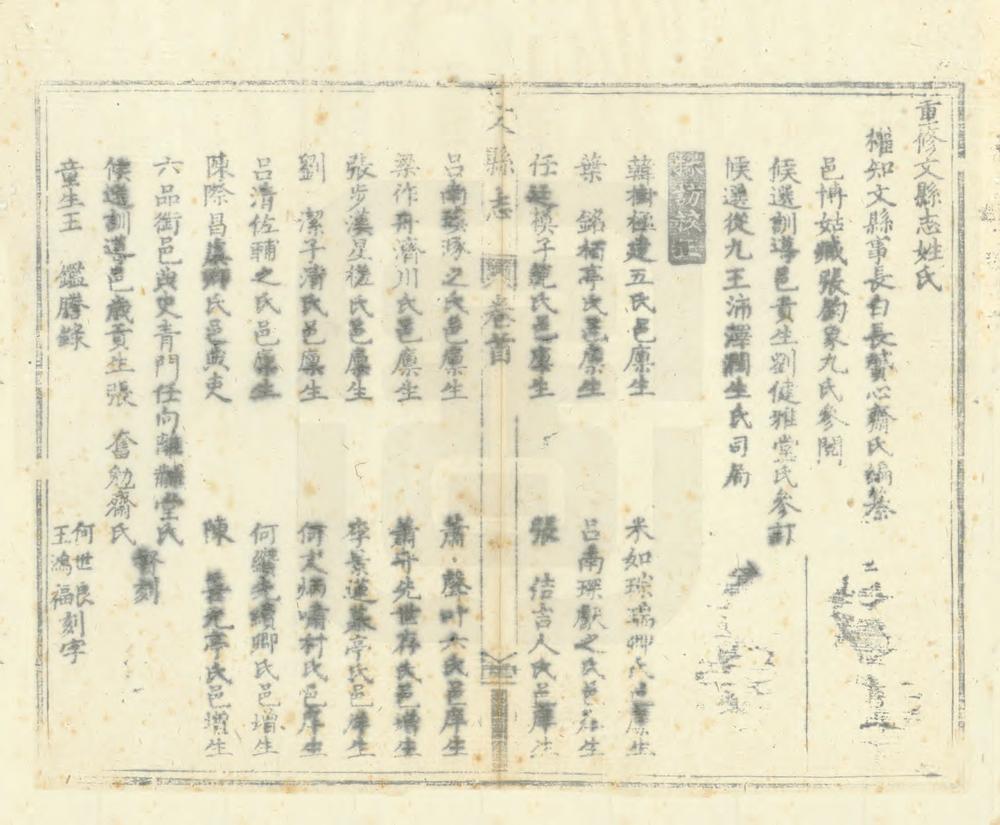 重修文縣志姓氏
權知文縣事長白長贇心齋氏編纂
邑博姑臧張鈞象九氏參閱
候選訓導邑貢生劉健雅堂氏參訂
候選從九王沛澤潤生氏司局
採訪校正
韓樹極建五氏邑廩生
米如琮瑞卿氏邑廩生
葉 銘栢亭氏邑廩生
呂南琛獻之氏邑庠生
任廷模子範氏邑廩生
張 佶吉人氏邑庠生
文縣志
卷首
呂南瑛琢之氏邑廩生
蕭 聲叶六氏邑庠生
梁作舟濟川氏邑廩生
蕭舟先世存氏邑增生
張步漢星槎氏邑廩生
李景蓮慕亭氏邑庠生
劉 潔子清氏邑廩生
何文炳嘯村氏邑庠生
呂清佐輔之氏邑廩生
何繼先續卿氏邑增生
陳際昌虞卿氏邑典吏
陳 善元亭氏邑增生
六品銜邑典史青門任向離黼堂氏
督刻
候選訓導邑歲貢生張 奮勉齋氏
童生王 鑑謄錄
何世良
王鴻福刻字